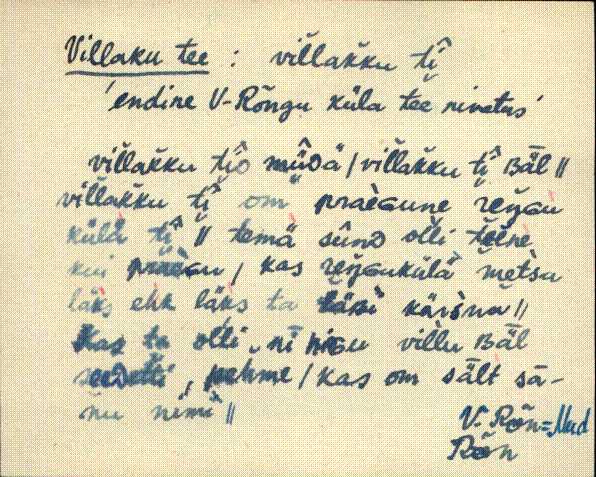 Villaku tee : vìllakku tî
'endine V-Rõngu küla tee nimetus'
vìllakku tîo müüdä / vìllakku tî Bäl ||
vìllakku tî om praèGune reŋGu
külä tî || temä sünD olli tẽine
kui praèGu / kas reŋGukülä mètsu
läks ehk läks ta täsi kärsna ||
kas ta olli ni niGu villu Bäl
, pehme / kas om sält sä-
nu nimi ||
V. Rõn = Mud
Rõn